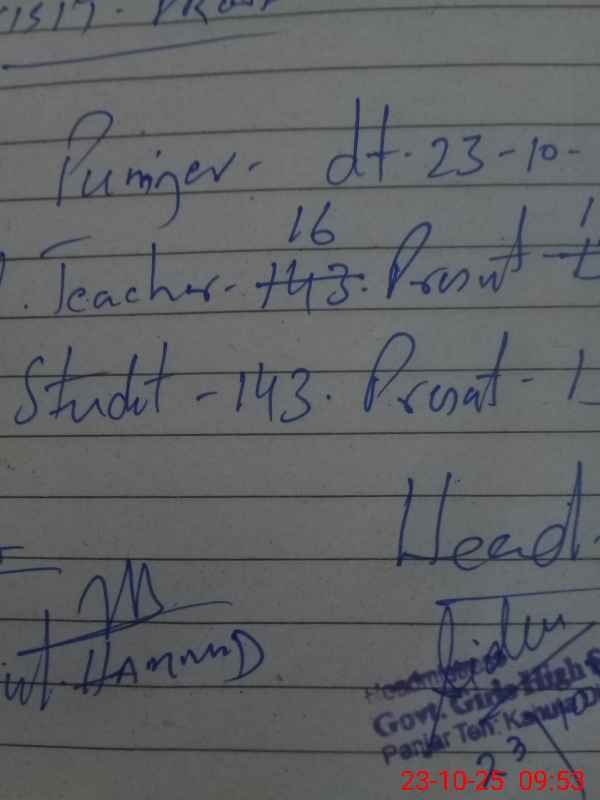 VISIT. PROOF
Punjger. dt. 23-10-
16
Teacher. 143. Presnt -
Studt - 143. Presat - 1
Head.
HAMMAD
Headmistress
Govt. Girls High S
Panjar Teh: Kahuta Di
23
23-10-25 09:53